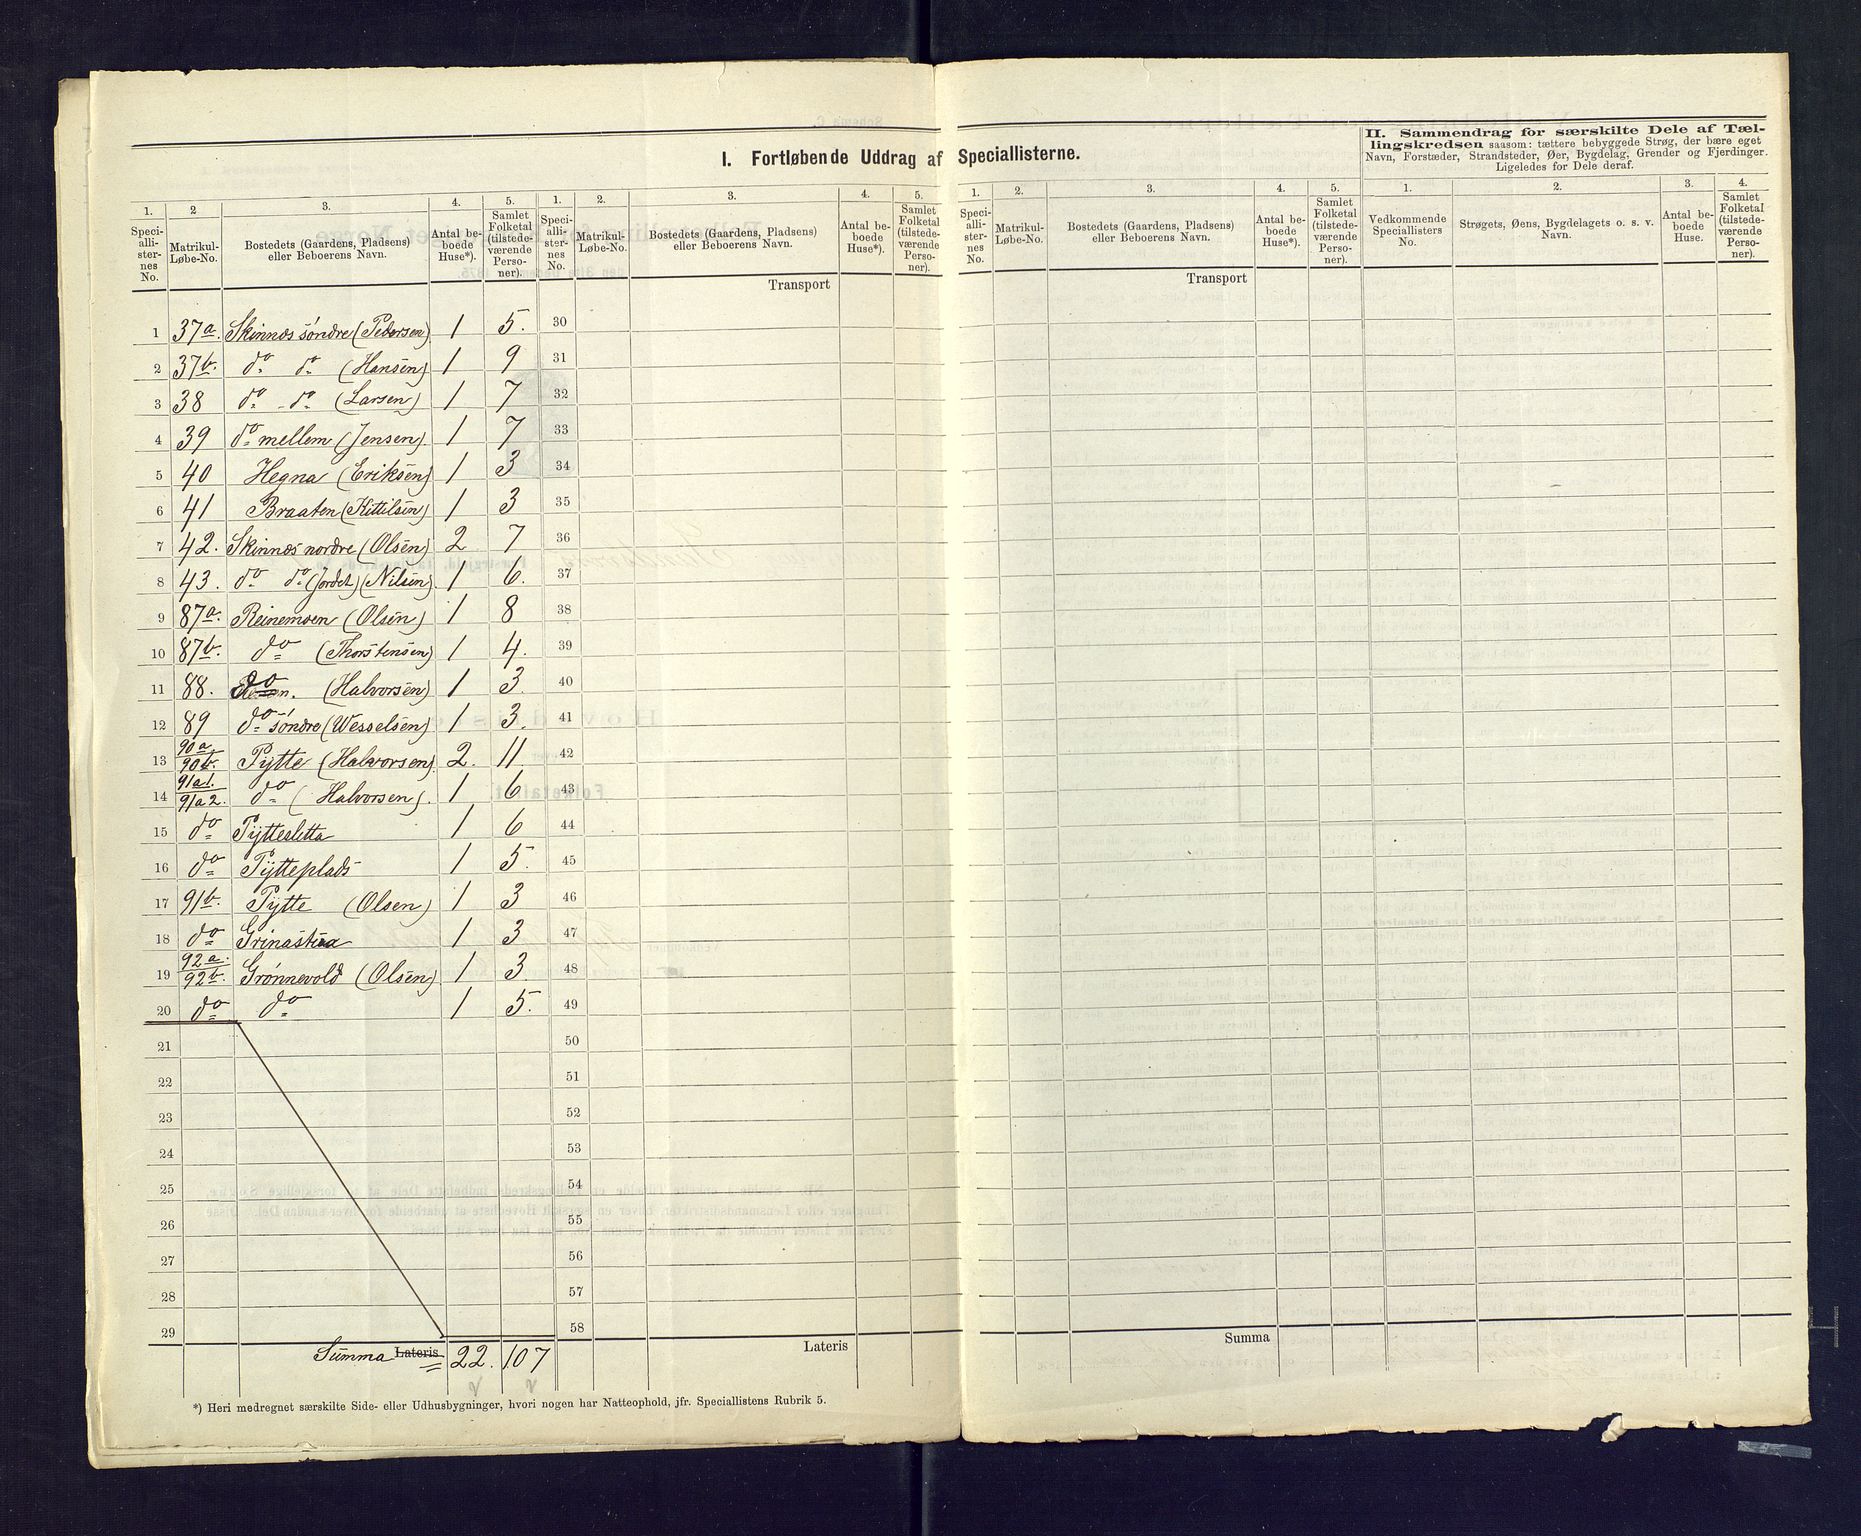 I. Fortløbende Uddrag af Speciallisterne.
II. Sammendrag for særskilte Dele af Tællingskredsen saasom: tættere bebyggede Strøg, der bære eget Navn, Forstæder, Strandsteder, Øer, Bygdelag, Grender og Fjerdinger. Ligeledes for Dele deraf.
1. 2 3. 4. 5. 1. 2. 3. 4. 5. 1. 2. 3. 4. 5. 1. 2. 3. 4.
Speciallisternes No. Matrikul-Løbe-No. Bostedets (Gaardens, Pladsens) eller Beboerens Navn. Antal beboede Huse*). Samlet Folketal (tilstedeværende Personer).
Speciallisternes No. Matrikul-Løbe-No. Bostedets (Gaardens, Pladsens) eller Beboerens Navn. Antal beboede Huse*). Samlet Folketal (tilstedeværende Personer).
Speciallisternes No. Matrikul-Løbe-No. Bostedets (Gaardens, Pladsens) eller Beboerens Navn. Antal beboede Huse*). Samlet Folketal (tilstedeværende Personer).
Vedkommende Speciallisters No. Strøgets, Øens, Bygdelagets o. s. v. Navn. Antal beboede Huse. Samlet Folketal (tilstedeværende Personer).
Transport Transport
1 37a. Skinnæs søndre (Pedersen) 1 5. 30
2 37b. do do (Hansen) 1 9 31
3 38 do do (Larsen) 1 7 32
4 39 do mellem (Jensen) 1 7 33
5 40 Hegna (Eriksen) 1 3 34
6 41 Braaten (Kittilsen) 1 3 35
7 42. Skinnæs nordre (Olsen) 2 7 36
8 43. do do (Jordet) (Nilsen) 1 6. 37
9 87a. Reinemoen (Olsen) 1 8 38
10 87b. do (Thorstensen) 1 4. 39
11 88. do (Halvorsen) 1 3. 40
12 89 do søndre (Wesselsen) 1 3. 41
13 90a. 90b. Pytte (Halvorsen) 2. 11. 42
14 91a1. 91a2. do (Halvorsen). 1 6 43
15 do Pyttesletta 1 6 44
16 do Pytteplads 1 5. 45
17 91b. Pytte (Olsen) 1 3 46
18 do 1 3 47
19 92a. 92b. Grønnevold (Olsen) 1 3. 48
20 do do 1 5. 49
21 50
22 51
23 52
24 53
25 54
26 55
27 56
28 57
29 58
Summa Lateris 22. 107 Lateris Summa
*) Heri medregnet særskilte Side- eller Udhusbygninger, hvori nogen har Natteophold, jfr. Speciallistens Rubrik 5.